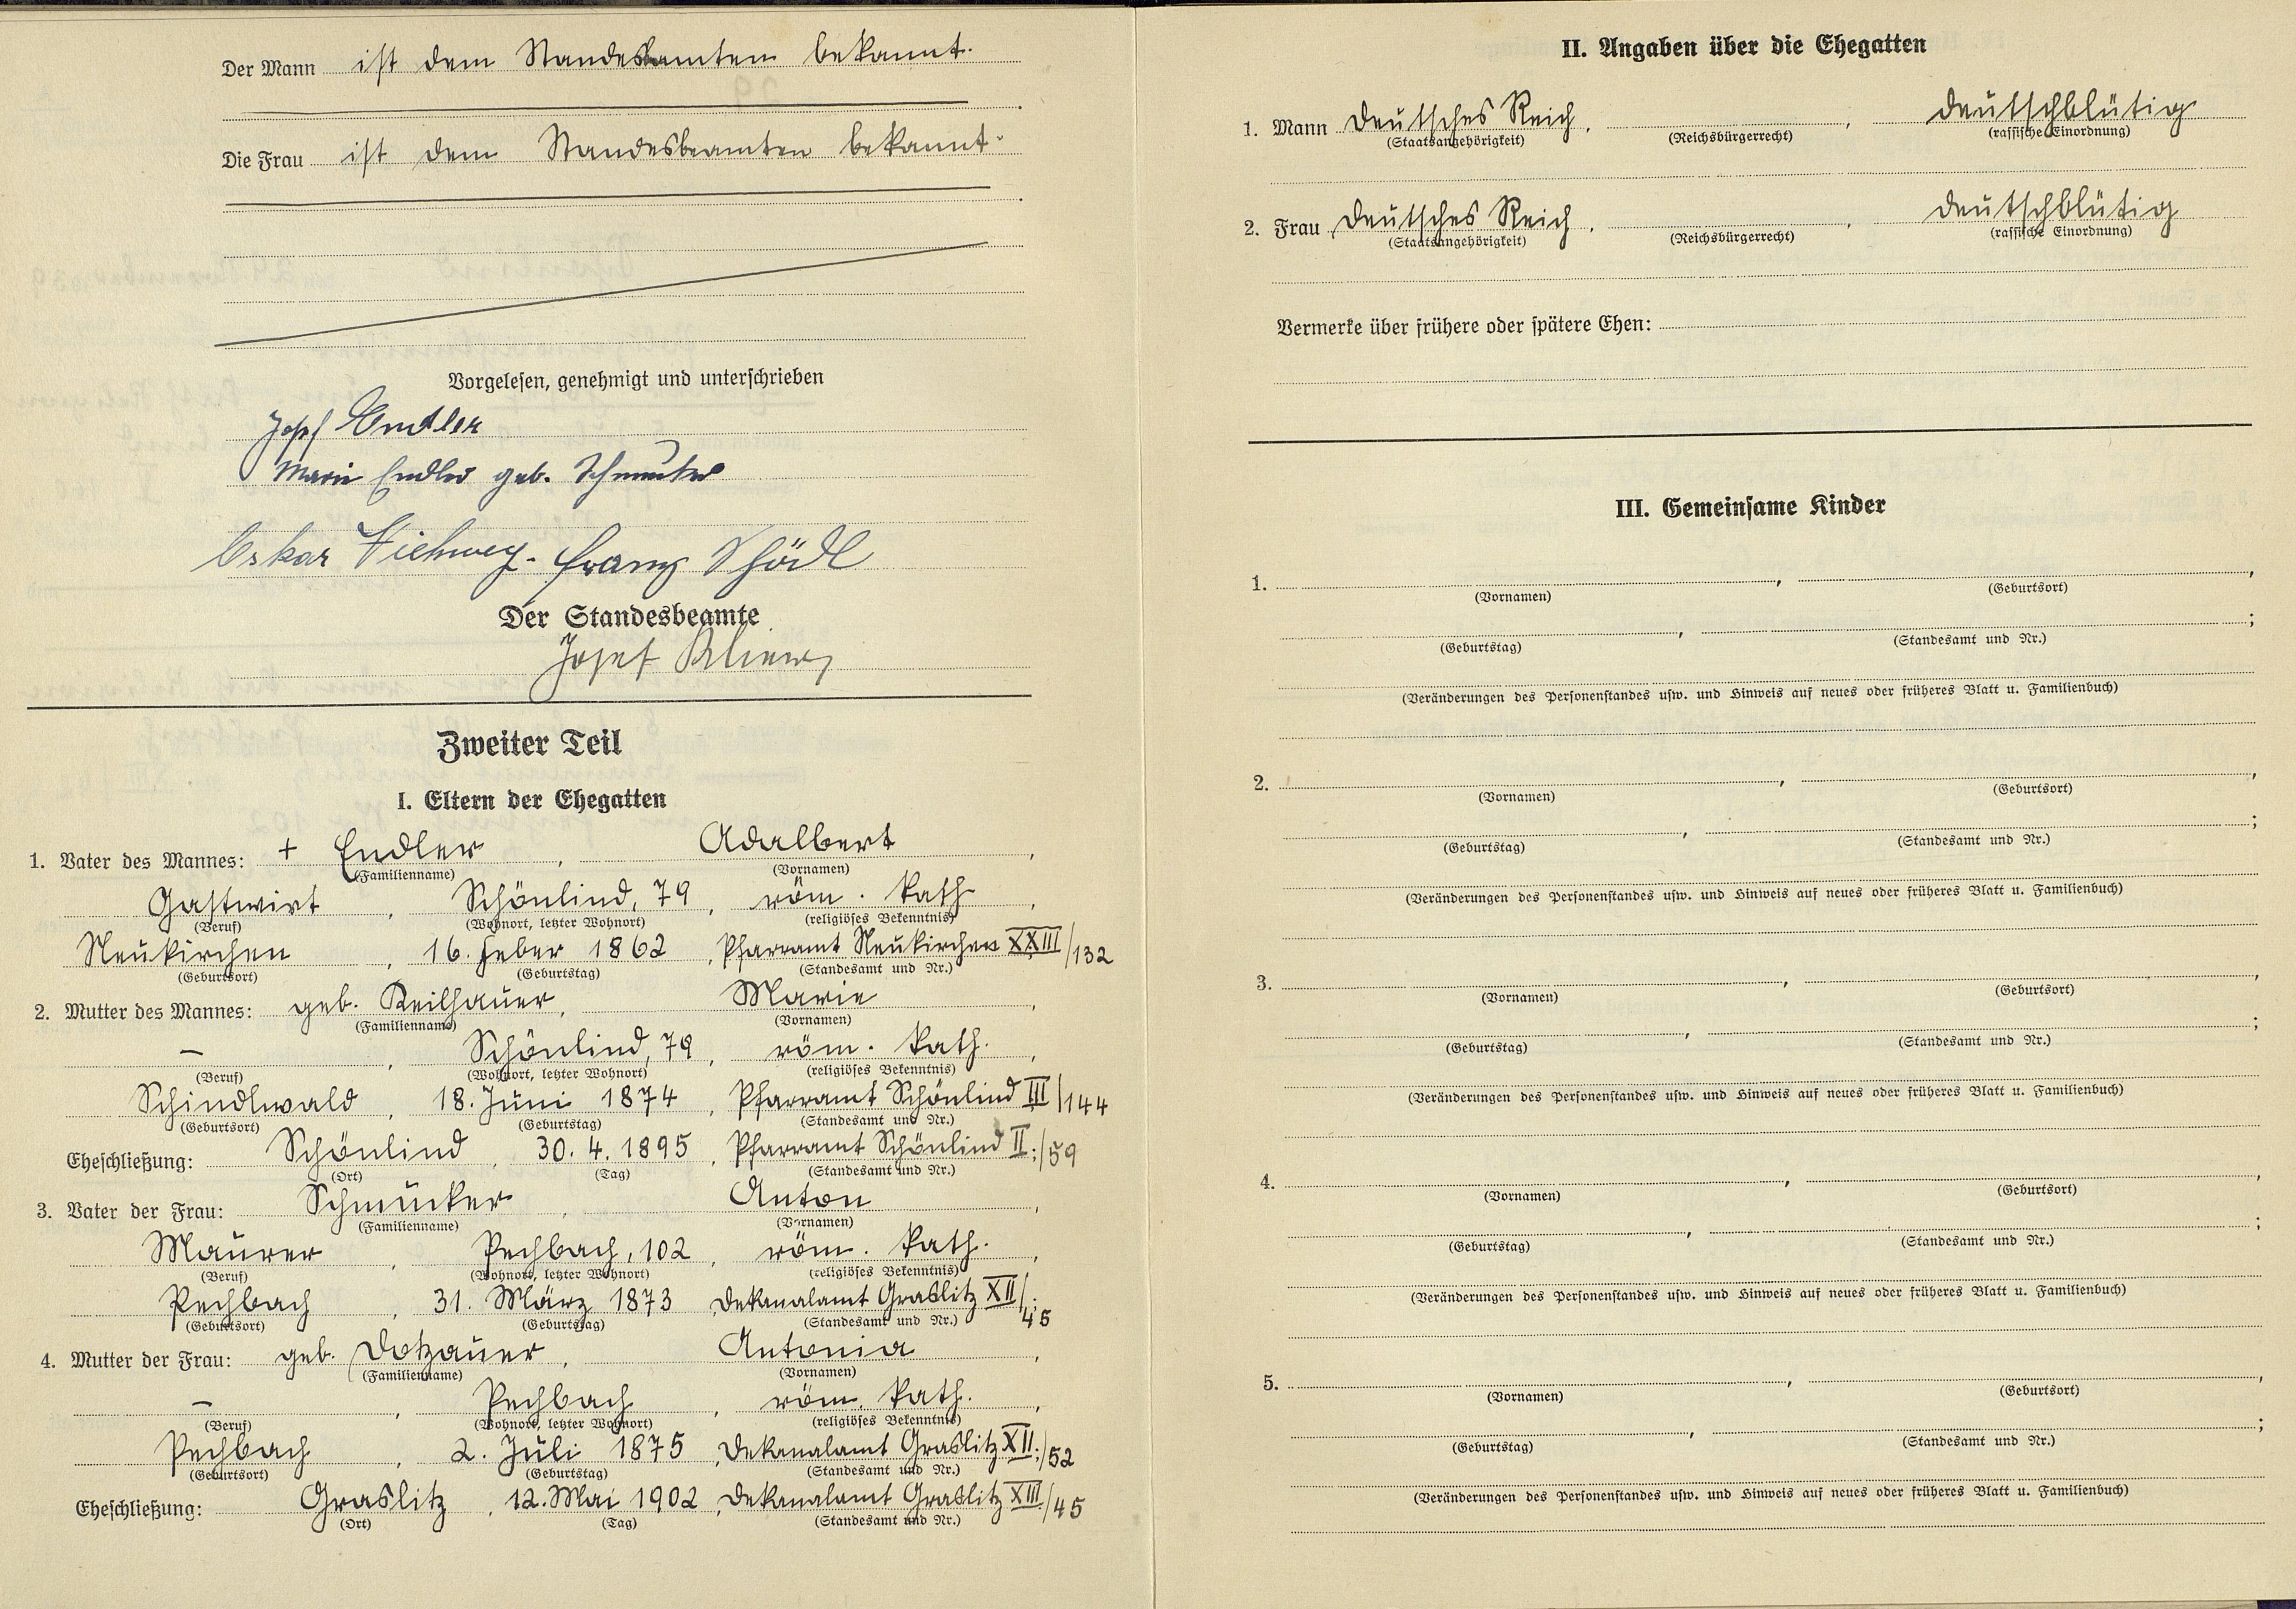 Der Mann ist dem Standesbeamten bekannt.
Die Frau ist dem Standesbeamten bekannt.
Vorgelesen, genehmigt und unterschrieben
Josef Endler
Marie Endler geb. Schmucker
Oskar Viehweg. Franz Schödl
Der Standesbeamte
Josef
Zweiter Teil
I. Eltern der Ehegatten
1. Vater des Mannes: + Endler, Adalbert,
(Familienname) (Vornamen)
Gastwirt, Schönlind, 79, röm. kath.,
(Beruf) (Wohnort, letzter Wohnort) (religiöses Bekenntnis)
Neukirchen, 16. Feber 1862, Pfarramt Neukirchen XXIII/132
(Geburtsort) (Geburtstag) (Standesamt und Nr.)
2. Mutter des Mannes: geb. Keilhauer, Marie,
(Familienname) (Vornamen)
–, Schönlind, 79, röm. kath.,
(Beruf) (Wohnort, letzter Wohnort) (religiöses Bekenntnis)
Schindlwald, 18. Juni 1874, Pfarramt Schönlind III/144
(Geburtsort) (Geburtstag) (Standesamt und Nr.)
Eheschließung: Schönlind, 30. 4. 1895, Pfarramt Schönlind II./59
(Ort) (Tag) (Standesamt und Nr.)
3. Vater der Frau: Schmucker, Anton,
(Familienname) (Vornamen)
Maurer, Pechbach, 102, röm. kath.,
(Beruf) (Wohnort, letzter Wohnort) (religiöses Bekenntnis)
Pechbach, 31. März 1873 Dekanalamt Graslitz XII/45
(Geburtsort) (Geburtstag) (Standesamt und Nr.)
4. Mutter der Frau: geb. Dotzauer, Antonia,
(Familienname) (Vornamen)
–, Pechbach, röm. kath.,
(Beruf) (Wohnort, letzter Wohnort) (religiöses Bekenntnis)
Pechbach, 2. Juli 1875, Dekanalamt Graslitz XII./52
(Geburtsort) (Geburtstag) (Standesamt und Nr.)
Eheschließung: Graslitz, 12. Mai 1902, Dekanalamt Graslitz XIII./45
(Ort) (Tag) (Standesamt und Nr.)
II. Angaben über die Ehegatten
1. Mann Deutsches Reich, , deutschblütig
(Staatsangehörigkeit) (Reichsbürgerrecht) (rassische Einordnung)
2. Frau Deutsches Reich, , deutschblütig
(Staatsangehörigkeit) (Reichsbürgerrecht) (rassische Einordnung)
Vermerke über frühere oder spätere Ehen:
III. Gemeinsame Kinder
1. , ,
(Vornamen) (Geburtsort)
, ;
(Geburtstag) (Standesamt und Nr.)
(Veränderungen des Personenstandes usw. und Hinweis auf neues oder früheres Blatt u. Familienbuch)
2. , ,
(Vornamen) (Geburtsort)
, ;
(Geburtstag) (Standesamt und Nr.)
(Veränderungen des Personenstandes usw. und Hinweis auf neues oder früheres Blatt u. Familienbuch)
3. , ,
(Vornamen) (Geburtsort)
, ;
(Geburtstag) (Standesamt und Nr.)
(Veränderungen des Personenstandes usw. und Hinweis auf neues oder früheres Blatt u. Familienbuch)
4. , ,
(Vornamen) (Geburtsort)
, ;
(Geburtstag) (Standesamt und Nr.)
(Veränderungen des Personenstandes usw. und Hinweis auf neues oder früheres Blatt u. Familienbuch)
5. , ,
(Vornamen) (Geburtsort)
, ;
(Geburtstag) (Standesamt und Nr.)
(Veränderungen des Personenstandes usw. und Hinweis auf neues oder früheres Blatt u. Familienbuch)